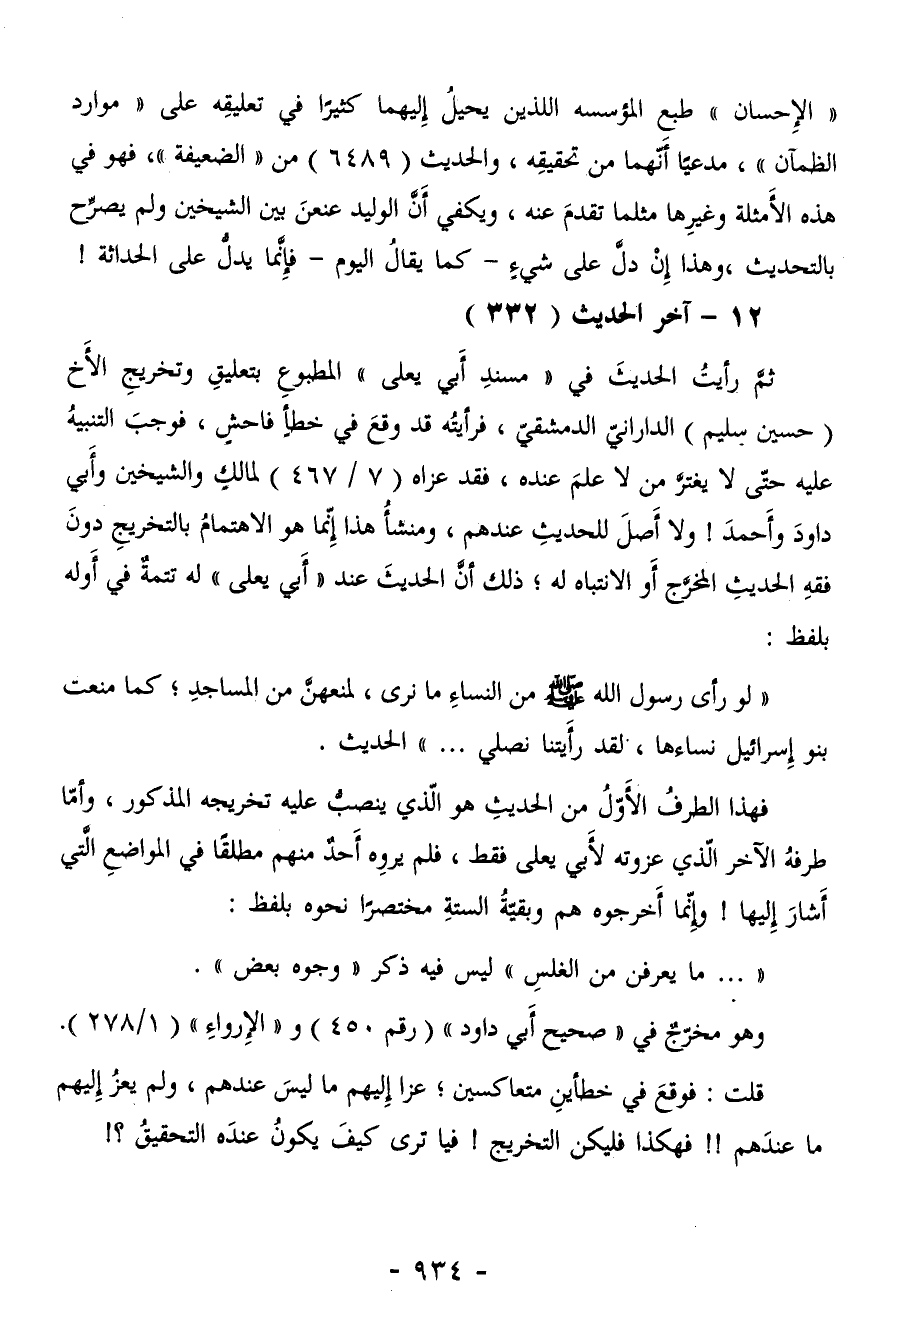 « الإِحسان » طبع المؤسسه اللذين يحيلُ إليهما كثيرًا في تعليقِه على « موارد
الظمآن » ، مدعيًا أَنّهما من تحقيقِه ، والحديث ( ٦٤٨٩ ) من « الضعيفة »، فهو في
هذه الأَمثلة وغيرِها مثلما تقدمَ عنه ، ويكفي أَنَّ الوليد عنعنَ بين الشيخين ولم يصرِّح
بالتحديث ،وهذا إِنْ دلَّ على شيءٍ - كما يقالُ اليوم - فإِنَّما يدلُّ على الحداثة !
١٢ - آخر الحديث ( ٣٣٢ )
ثمَّ رأيتُ الحديثَ في « مسندِ أَبي يعلى » المطبوعِ بتعليقِ وتخريجِ الأَخ
( حسين سليم ) الدارانيّ الدمشقيّ ، فرأيتُه قد وقعَ في خطأٍ فاحشٍ ، فوجبَ التنبيهُ
عليه حتّى لا يغترَّ من لا علمَ عنده ، فقد عزاه ( ٧ / ٤٦٧ ) لمالكٍ والشيخين وأَبي
داودَ وأَحمدَ ! ولا أَصلَ للحديثِ عندهم ، ومنشأُ هذا إِنّما هو الاهتمامُ بالتخريجِ دونَ
فقهِ الحديثِ المخرَّج أَو الانتباه له ؛ ذلك أنَّ الحديثَ عند « أَبي يعلى » له تتمةٌ في أَوله
بلفظ :
« لو رأى رسول الله ﷺ من النساءِ ما نرى ، لمنعهنَّ من المساجدِ ؛ كما منعت
بنو إِسرائيل نساءها ، لقد رأَيتنا نصلي ... » الحديث .
فهذا الطرفُ الأَوّلُ من الحديثِ هو الّذي ينصبُّ عليه تخريجه المذكور ، وأمّا
طرفهُ الآخر الّذي عزوته لأَبي يعلى فقط ، فلم يروِه أَحدٌ منهم مطلقًا في المواضعِ الَّتي
أَشارَ إِليها ! وإِنّما أَخرجوه هم وبقيّةُ الستةِ مختصرًا نحوه بلفظ :
« ... ما يعرفن من الغلسِ » ليس فيه ذكر « وجوه بعض » .
وهو مخرّجٌ في « صحيح أَبي داود » ( رقم ٤٥٠ ) و « الإِرواءِ » ( ٢٧٨/١ ).
قلت : فوقعَ في خطأينِ متعاكسين ؛ عزا إِليهم ما ليسَ عندهم ، ولم يعزُ إِليهم
ما عندَهم !! فهكذا فليكن التخريج ! فيا ترى كيفَ يكونُ عندَه التحقيقُ ؟!
- ٩٣٤ -